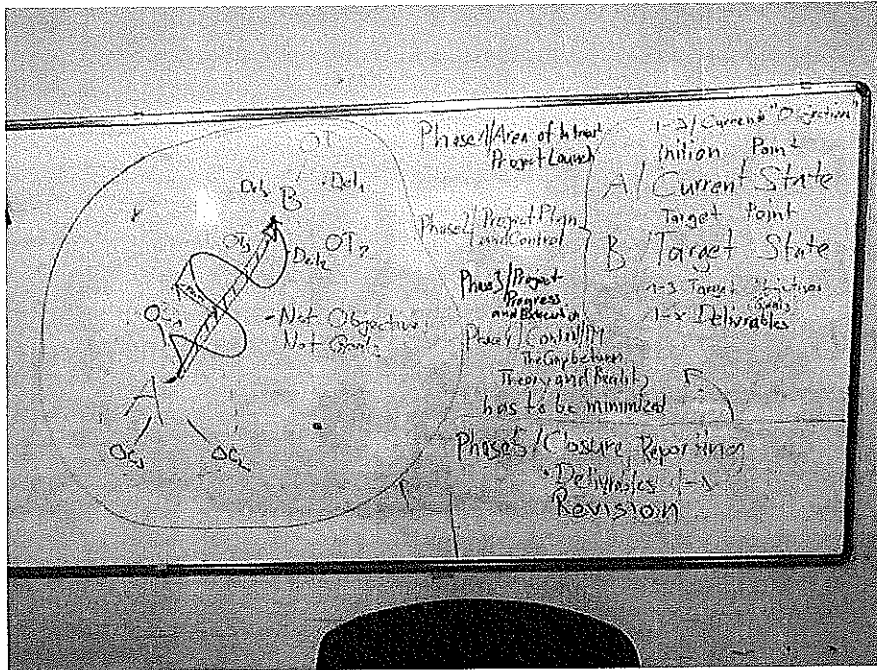 OT
Del3
B
Del1
OT3
Del2
OT2
OC1
- Not Objective
Not Goals
OC3
OC2
Phase1/Area of
Project Launch
Phase2/Project Plan
and Control
Phase3/Project
Progress
and
Phase4/
The Gap between
Theory and Reality
has to be minimized
Phase5/Closure, Reporting
• Delivrables 1-
Revision
1-3/Current
Point
A/Current State
Target Point
B/Target State
1-3 Target
1-x Delivrables